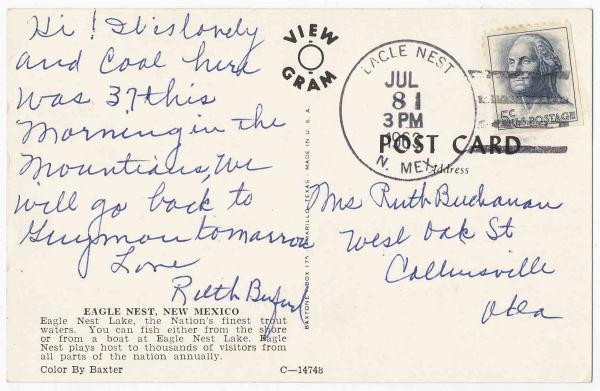 Hi! It is lovely
and Cool here
was 37 this
Morning in the
Mountians, We
will go back to
Guymon tomarrow
Love
Ruth Buford
EAGLE NEST, NEW MEXICO
Eagle Nest Lake, the Nation's finest trout
waters. You can fish either from the shore
or from a boat at Eagle Nest Lake. Eagle
Nest plays host to thousands of visitors from
all parts of the nation annually.
Color By Baxter
C—14748
VIEW
GRAM
BAXTONE, BOX 175, AMARILLO, TEXAS MADE IN U.S.A.
EAGLE NEST
JUL
31
3 PM
1963
N. MEX.
5c U.S. POSTAGE
POST CARD
Address
Mrs Ruth Buchanan
West Oak St
Collinsville
Okla